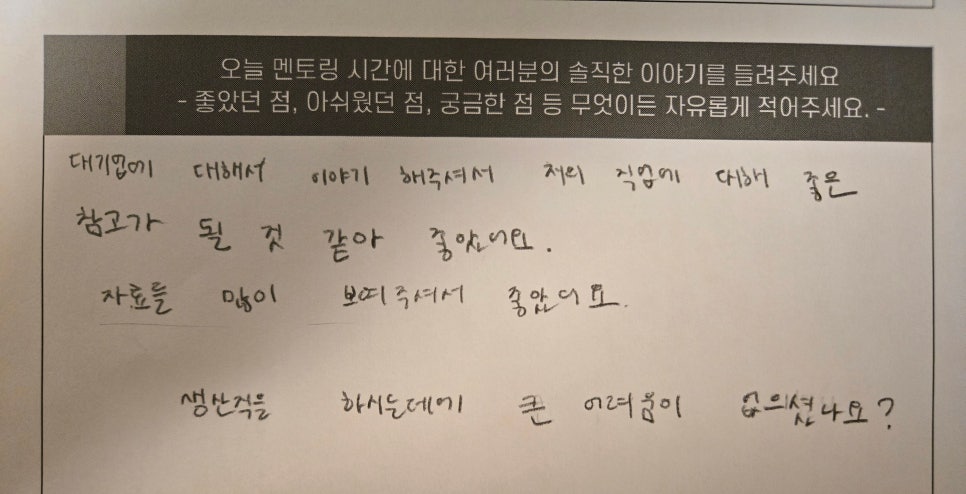 오늘 멘토링 시간에 대한 여러분의 솔직한 이야기를 들려주세요
- 좋았던 점, 아쉬웠던 점, 궁금한 점 등 무엇이든 자유롭게 적어주세요. -
대기업에 대해서 이야기 해주셔서 저의 직업에 대해 좋은
참고가 될 것 같아 좋았어요.
자료들 많이 보여주셔서 좋았어요.
생산직을 하시는데에 큰 어려움이 없으셨나요?